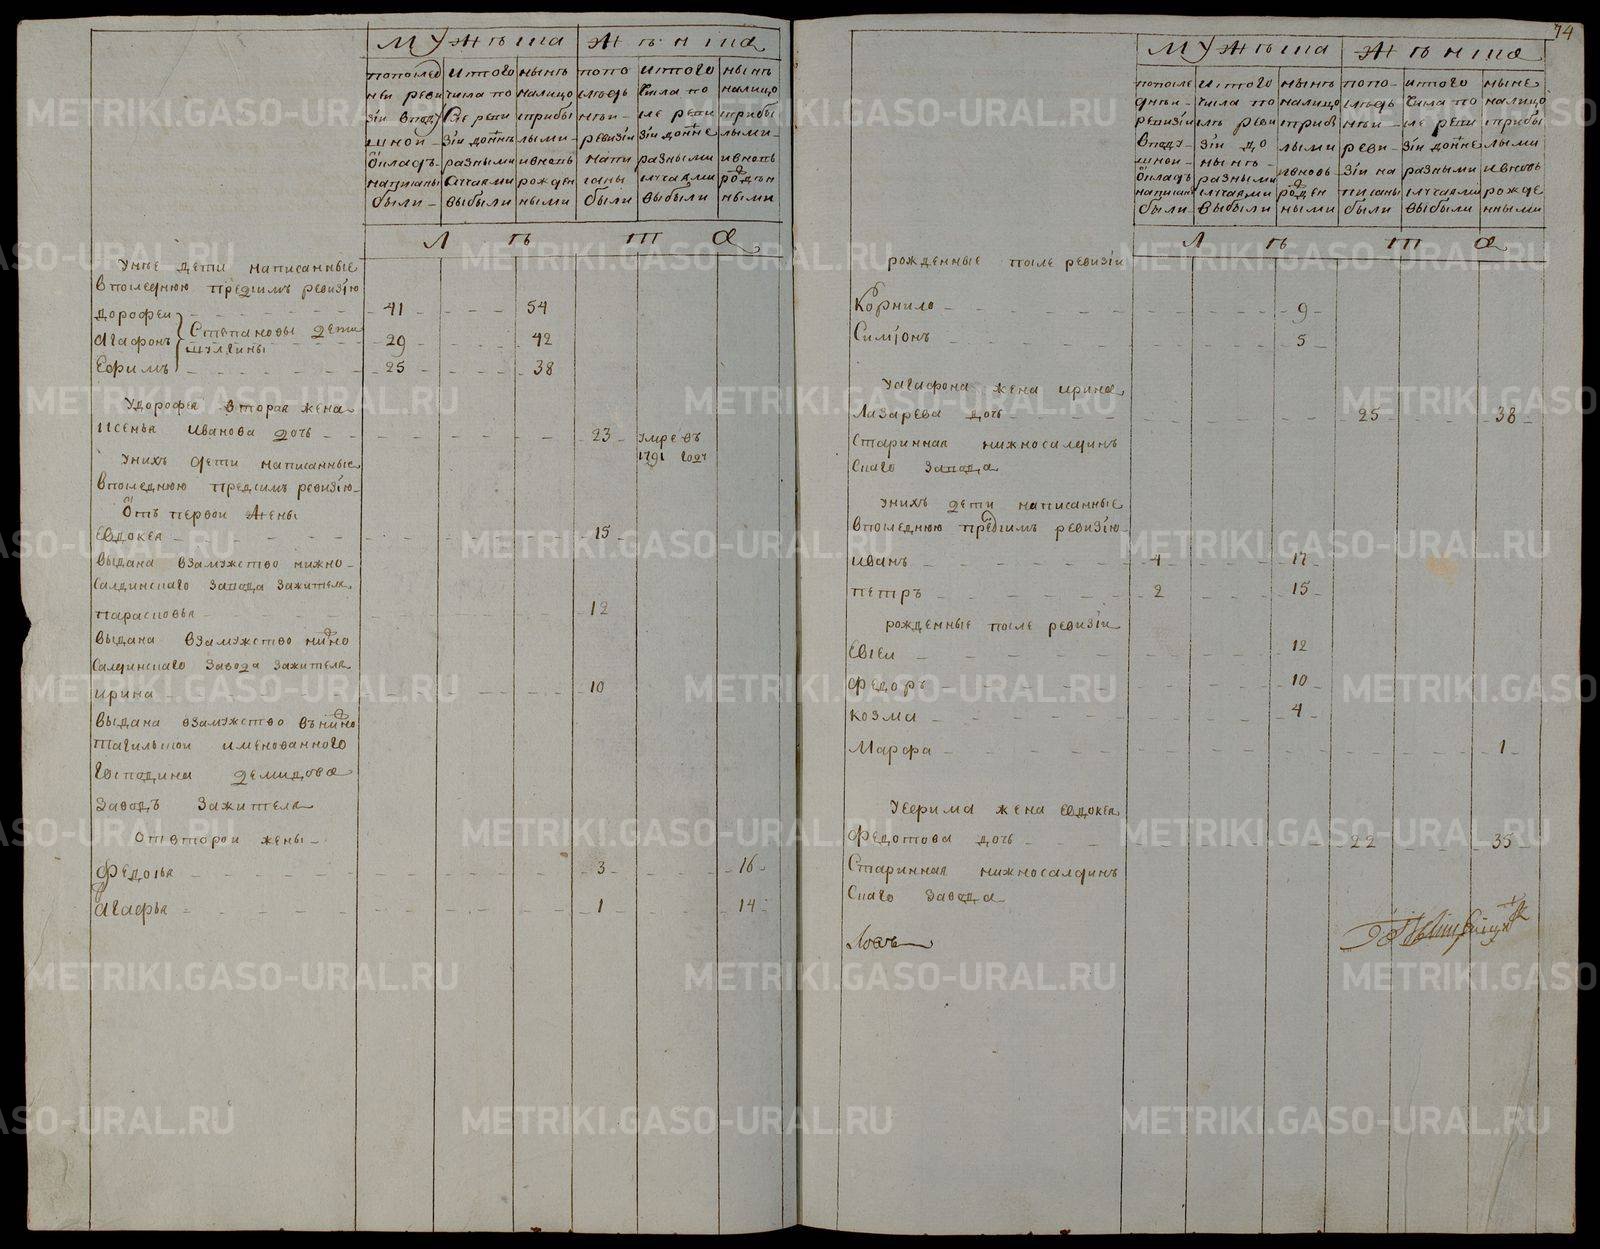 74
Мужеска Женска
попослед
ней реви
зіи вподу
шной
окладъ
написаны
были
итого
числа по
сле реви
зіи донне
разными
случаями
выбыли
ныне
налицо
сприбы
лыми
ивновь
рожден
ными
попо
следь
ней
ревизіи
напи
саны
были
итого
числа по
сле реви
зіи донне
разными
случаями
выбыли
ныне
налицо
сприбы
лыми
ивновь
рожден
ными
Л ѣ т а
Унее дети написанные
впоследнюю предсимъ ревизію
Дорофеи 41 54
Агафонъ Степановы дети 29 42
Шулгины
Ефимъ 25 38
Удорофея вторая жена
Ксенья Иванова дочь 23 умре въ
1791 году
Унихъ дети написанные
впоследнюю предсимъ ревизію
Отъ первои жены
Евдокея 15
выдана взамужство нижно
Салдинскаго завода зажителя
Парасковья 12
выдана взамужство нижно
Салдинскаго завода зажителя
Ирина 10
выдана взамужство въ нижно
Тагильскои именованного
Господина Демидова
заводъ зажителя
От второи жены
Федосья 3 16
Агафья 1 14
Мужеска Женска
попосле
дней
ревизіи
вподу
шной
окладъ
написаны
были
итого
числа по
слѣ реви
зіи до
ныне
разными
случаями
выбыли
ныне
налицо
сприб
лыми
ивновь
рожден
ными
попо
следь
ней
реви
зіи на
писаны
были
итого
числа по
сле реви
зіи донне
разными
случаями
выбыли
ныне
налицо
сприбы
лыми
ивновь
рожде
нными
Л ѣ т а
рожденные после ревизіи
Корнило 9
Симіонъ 5
Уагафона жена Ирина
Лазарева дочь 25 38
Старинная нижносалдинъ
скаго завода
Унихъ дети написанные
впоследнюю предсимъ ревизію
Иванъ 4 17
Петръ 2 15
рожденные после ревизіи
Евсеи 12
Федоръ 10
Козма 4
Марфа 1
Уефима жена Евдокея
Федотова дочь 22 35
Старинная нижносалдинъ
скаго завода
METRIKI.GASO-URAL.RU